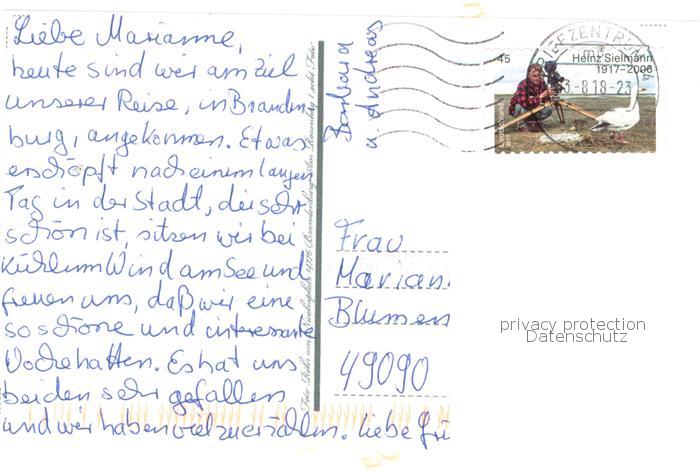 Liebe Marianne,
heute sind wir am Ziel
unserer Reise, in Branden-
burg, angekommen. Etwas
erschöpft nach einem langen
Tag in der Stadt, die sehr
schön ist, sitzen wir bei
kühlem Wind am See und
freuen uns, daß wir eine
so schöne und interessante
Woche hatten. Es hat uns
beiden sehr gefallen
und wir haben viel zu erzählen. Liebe Grü
Barbara
u. Andreas
45
Heinz Sielmann
1917–2006
BRIEFZENTRUM
-8.18-23
14
Frau
Marian
Blumen
49090
privacy protection
Datenschutz